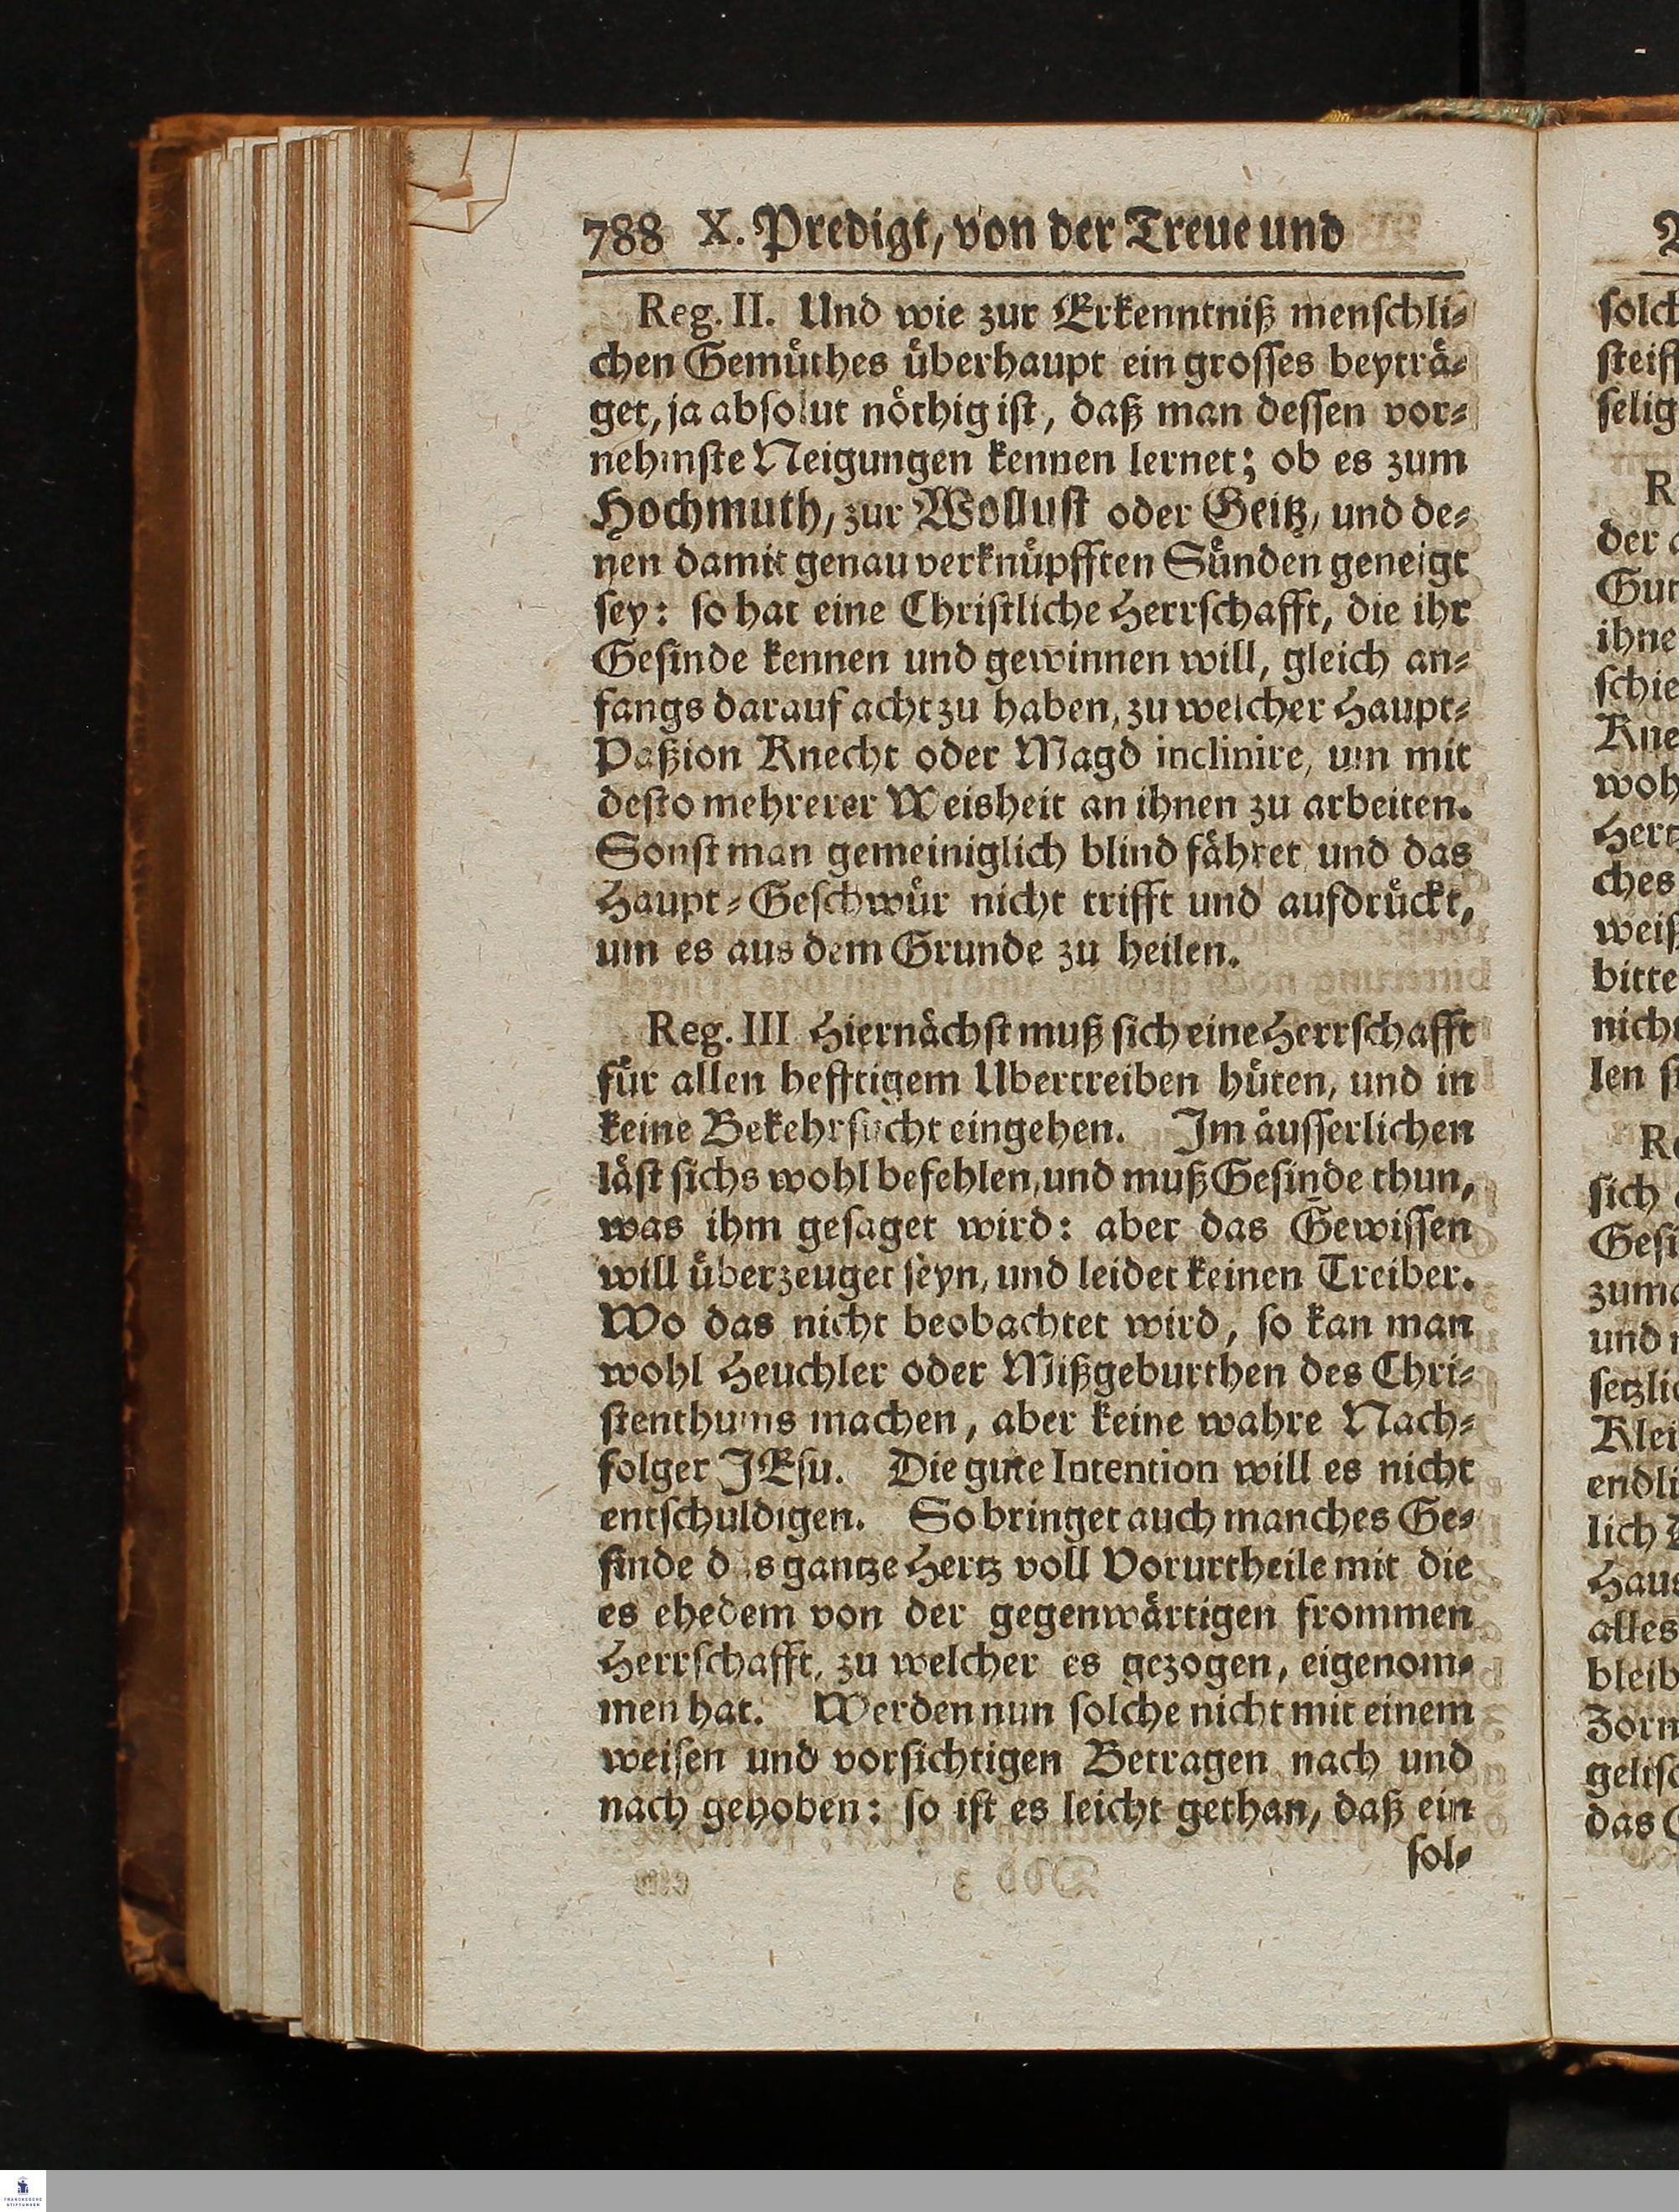 788 X. Predigt, von der Treue und
Reg. II. Und wie zur Erkenntniß menschli-
chen Gemüthes überhaupt ein grosses beyträ-
get, ja absolut nöthig ist, daß man dessen vor-
nehmste Neigungen kennen lernet; ob es zum
Hochmuth, zur Wollust oder Geitz, und de-
nen damit genau verknüpfften Sünden geneigt
sey: so hat eine Christliche Herrschafft, die ihr
Gesinde kennen und gewinnen will, gleich an-
fangs darauf acht zu haben, zu welcher Haupt-
Paßion Knecht oder Magd inclinire, um mit
desto mehrerer Weisheit an ihnen zu arbeiten.
Sonst man gemeiniglich blind fähret und das
Haupt-Geschwür nicht trifft und aufdrückt,
um es aus dem Grunde zu heilen.
Reg. III Hiernächst muß sich eine Herrschafft
für allen hefftigem Ubertreiben hüten, und in
keine Bekehrsucht eingehen. Im äusserlichen
läst sichs wohl befehlen, und muß Gesinde thun,
was ihm gesaget wird: aber das Gewissen
will überzeuget seyn, und leidet keinen Treiber.
Wo das nicht beobachtet wird, so kan man
wohl Heuchler oder Mißgeburthen des Chri-
stenthums machen, aber keine wahre Nach-
folger JEsu. Die gute Intention will es nicht
entschuldigen. So bringet auch manches Ge-
sinde das gantze Hertz voll Vorurtheile mit die
es ehedem von der gegenwärtigen frommen
Herrschafft, zu welcher es gezogen, eigenom-
men hat. Werden nun solche nicht mit einem
weisen und vorsichtigen Betragen nach und
nach gehoben: so ist es leicht gethan, daß ein
sol-
solch
steiff
selig
R
der
Gut
ihne
schie
Kne
woh
Hertz
ches
weiß
bitte
nicht
len
sich
Gesi
zuma
und
setzli
Klei
endli
lich
Haus
alles
bleib
Zorn
geltsc
das
FRANCKESCHE
STIFTUNGEN